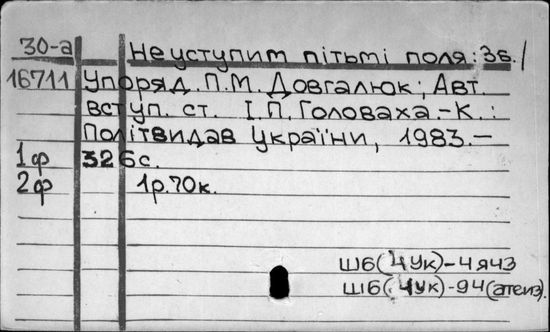 30-а Не уступит пітьмі поля: Зб. /
16711 Упоряд. П.М. Довгалюк, Авт.
вступ. ст. І.П. Головаха.-К.:
Політвидав України, 1983.-
1ф 326с.
2ф 1р.70к.
Ш6(4Ук)-4я43
Ш6(4Ук)-94(атеиз.)